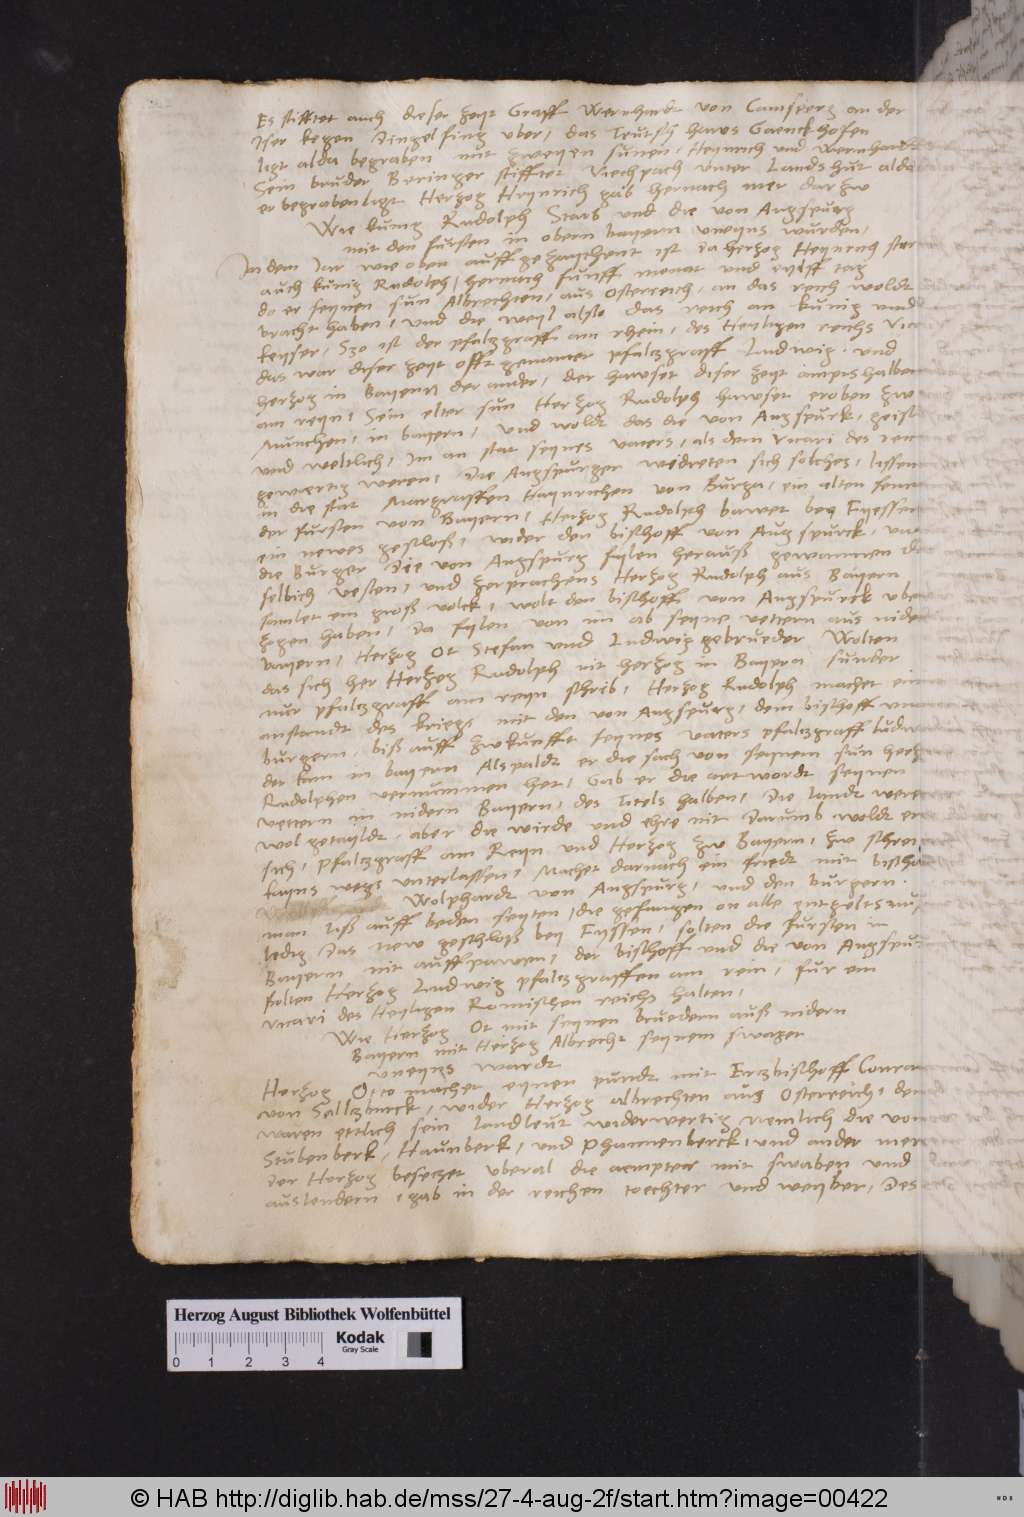 Es stifftet auch dieser zeyt Graff Wernhardt von Lamsperg an der
Iser kegen Dingelfing vber, das Teutsch haws Gaenckhofen
ligt alda begraben mit zweyen sunen, Heynrich und Wernhardt
Sein bruder Beringer stifftet Viechpach vnter Landshut alda
er begraben ligt Hertzog Heynrich gab hernach mer darzw
Wie kunig Rudolph Starb und die von Augspurg
mit den fursten in obern bayern vneyns wurden,
In dem Jar wie oben auff gezaychent ist da hertzog Heynrich starb
auch kunig Rudolph, hernach funff monat und eylff tag
do er seynen sun Albrechten, aus Osterreich, an das reich woldt
bracht haben, und die weyl also das reich an kunig und
keyser, Szo ist der pfaltzgraff am rhein, des Heyligen reichs Vicari
das war diser zeyt offt genanter pfaltzgraff Ludwig. und
hertzog in Bayern der ander, der hawset diser zeyt ampts halben
am reyn, Sein elter sun Hertzog Rudolph hawset eroben zw
Munchen, in bayern, und woldt das die von Augspurk, geistlich
und weltlich, Im an stat seynes vaters, als dem Vicari des reichs
gewertig weren, Die Augspurger widreten sich solches, liessen
in die stat Margraffen Haynrichen von Burga, ein alten feindt
der fursten von Bayern, Hertzog Rudolph bawet bey Fyessen
ein newes geschloß, wider den bischoff von Augspurck, und
die Burger Die von Augspurg fylen herauß gewannen die
selbich vesten, und zerprachens Hertzog Rudolph aus Bayern
samlet ein groß volck, wolt den bischoff von Augspurck vber
zogen haben, Da fylen von im ab seyne vettern aus nider
bayern, Hertzog Ot Stefan und Ludwig gebrueder Wolten
das sich her Hertzog Rudolph nit hertzog in Bayern sunder
nur pfaltzgraff am reyn schrib, Hertzog Rudolph machet ein
anstandt des kriegs, mit den von Augspurg, dem bischoff und
burgern, biß auff zwkunfft seynes vaters pfaltzgraff ludwig
der kam in bayern Als paldt er die sach von seynem sun hertzog
Rudolphen vernummen het, Gab er die antwordt seynen
vettern in nidern Bayern, des Titels halben, Die landt weren
wol getayldt, aber die wirde und ehre nit Darumb woldt er
sich, Pfaltzgraff am Reyn und Hertzog zw Bayern, zw schreiben
kayns wegs unterlassen, Machet darnach ein friedt mit bischoff
Wolphardt von Augspurg, und den burgern.
man liß auff beden seyten, die gefangen on alle entgeltnus
ledig Das new geschloß bey Fyssen, solten die fursten in
Bayern nit auffpawen, der bischoff und die von Augspurg
solten Hertzog Ludwig pfaltzgraffen am rein, fur ein
vicari des Heyligen Romischen reichs halten,
Wie Hertzog Ot mit seynen bruedern auß nidern
Bayern mit Hertzog Albrecht seynem swager
vneyns wardt
Hertzog Otto machet eynen pundt mit Ertzbischoff Conrad
von Saltzburck, wider Hertzog albrechten aus Osterreich, dem
waren ettlich sein landleut widerwertig nemlich die von
Stubenberk, Haunberk, und Phannenberck, und ander mer
Der Hertzog besetzet vberal die aempter mit swaben und
auslendern, gab in der reichen toechter und weyber, Des
Herzog August Bibliothek Wolfenbüttel
Kodak
Gray Scale
0 1 2 3 4
© HAB http://diglib.hab.de/mss/27-4-aug-2f/start.htm?image=00422